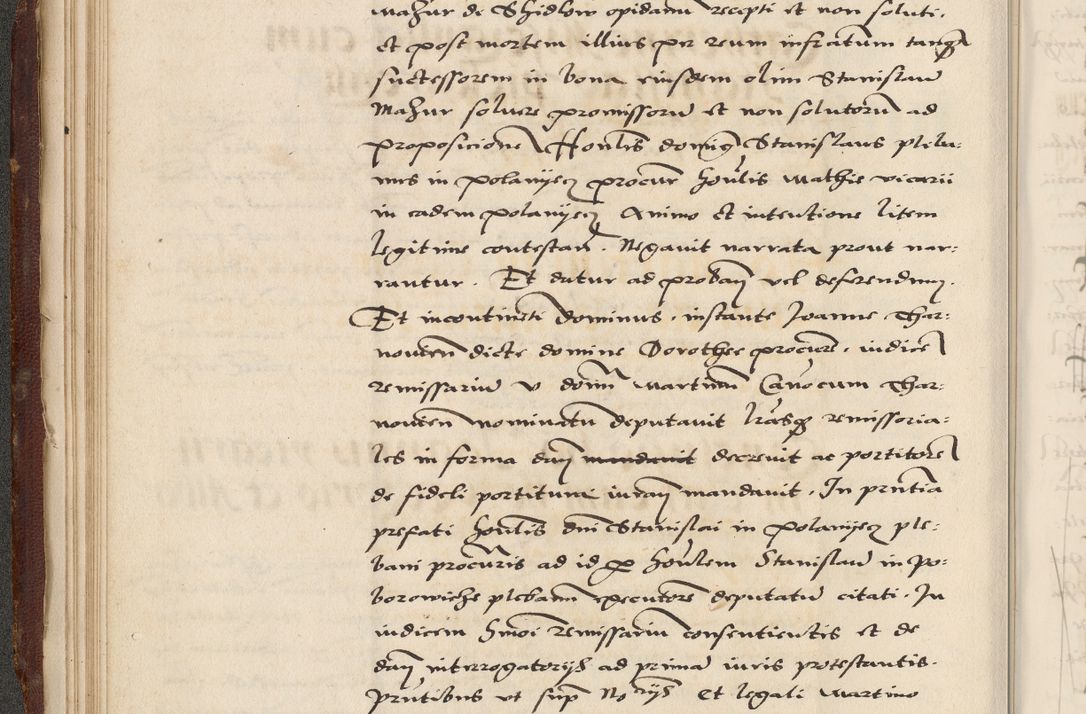 Mazur de Shidlow opidanu recepti et non soluti,
et post mortem illius per reum infratum tanqȝ
successorem in bona eiusdem olim Stanislai
Mazur solvere promissoru et non solutoru ad
proposicione Honlis dominꝰ Stanislaus pleba-
nus in Polanijecz procur honlis Mathie vicarii
in eadem Polanijecz Animo et intentione litem
legitime contestan. Negavit narrata prout nar-
rantur. Et datur ad proban vel deferendum.
Et incontinenti Dominus, instante Joanne Thar-
novien dicte domine Dorothee procure, iudice
remissariu v domi Martinum Cavocum Thar-
novien nominatu deputavit lrasqȝ remissoria-
les in forma dan mandavit decrevit ac portitore
de fideli portitura iuran mandavit. In pntia
prefati honlis dni Stanislai in Polanijecz ple-
bani procuris ad id p honlem Stanislau in Po-
borowiche plebanu executore deputatu citati. In
iudicem hmoi remissariu consentientis et de
dan interrogatorijs ad prima iuris protestantis.
Pntibus ut sup Norijs et legali Martino